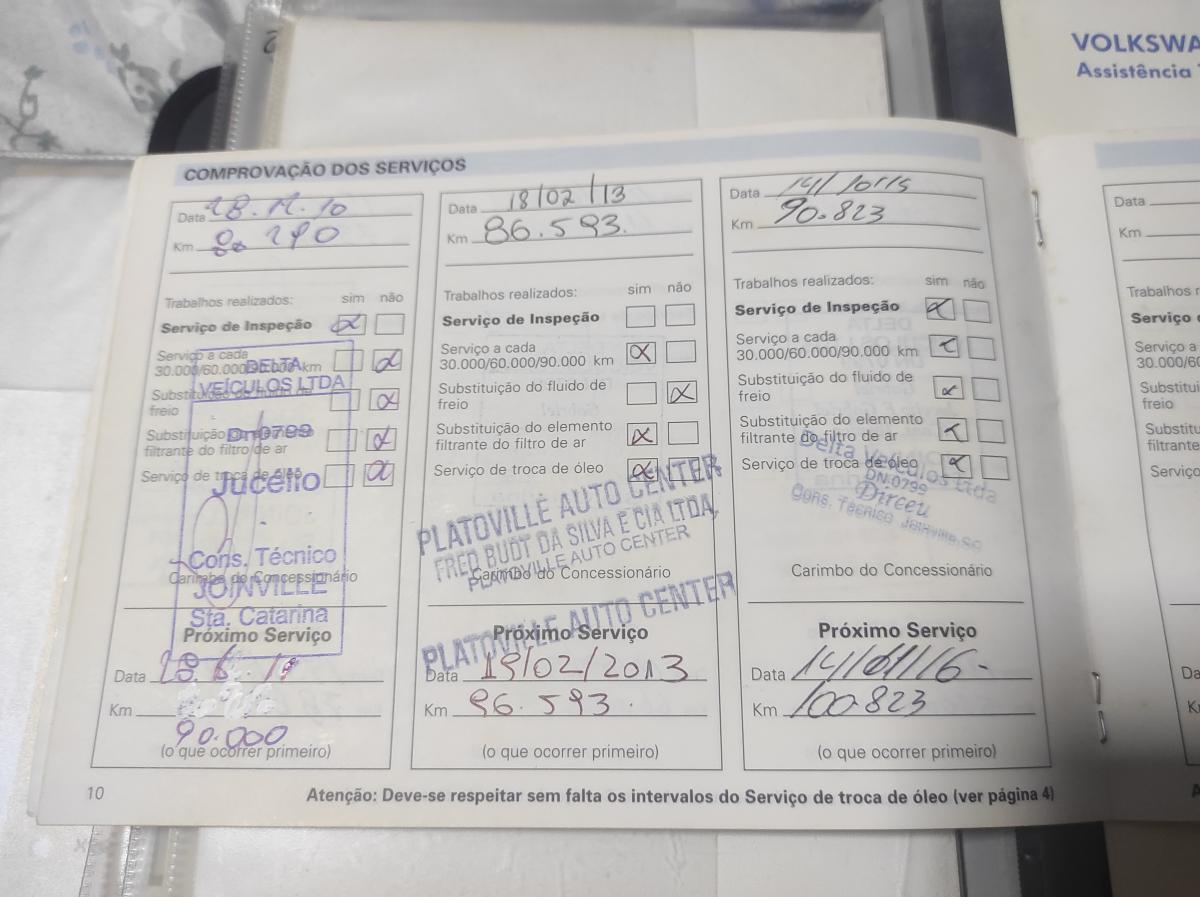 VOLKSWA
Assistência
COMPROVAÇÃO DOS SERVIÇOS
Data
Km
Trabalhos realizados: sim não
Serviço de Inspeção
Serviço a cada
30.000/60.000/90.000 km
Substituição do fluido de
freio
Substituição do elemento
filtrante do filtro de ar
Serviço de troca de óleo
DELTA
VEÍCULOS LTDA
Dn0799
Jucélio
Cons. Técnico
JOINVILLE
Sta. Catarina
Carimbo do Concessionário
Próximo Serviço
Data
Km
90.000
(o que ocorrer primeiro)
Data 18/02/13
Km 86.593.
Trabalhos realizados: sim não
Serviço de Inspeção
Serviço a cada
30.000/60.000/90.000 km
Substituição do fluido de
freio
Substituição do elemento
filtrante do filtro de ar
Serviço de troca de óleo
PLATOVILLE AUTO CENTER
FRED BUDT DA SILVA E CIA LTDA,
PLATOVILLE AUTO CENTER
Carimbo do Concessionário
PLATOVILLE AUTO CENTER
Próximo Serviço
Data 19/02/2013
Km 96.593.
(o que ocorrer primeiro)
Data
Km 90.823
Trabalhos realizados: sim não
Serviço de Inspeção
Serviço a cada
30.000/60.000/90.000 km
Substituição do fluido de
freio
Substituição do elemento
filtrante do filtro de ar
Serviço de troca de óleo
Delta Veículos Ltda
DN.0799
Dirceu
Cons. Técnico Joinville.SC
Carimbo do Concessionário
Próximo Serviço
Data
Km 100.823
(o que ocorrer primeiro)
10
Atenção: Deve-se respeitar sem falta os intervalos do Serviço de troca de óleo (ver página 4)
Data
Km
Trabalhos r
Serviço
Serviço a
30.000/60
Substitui
freio
Substitu
filtrante
Serviço